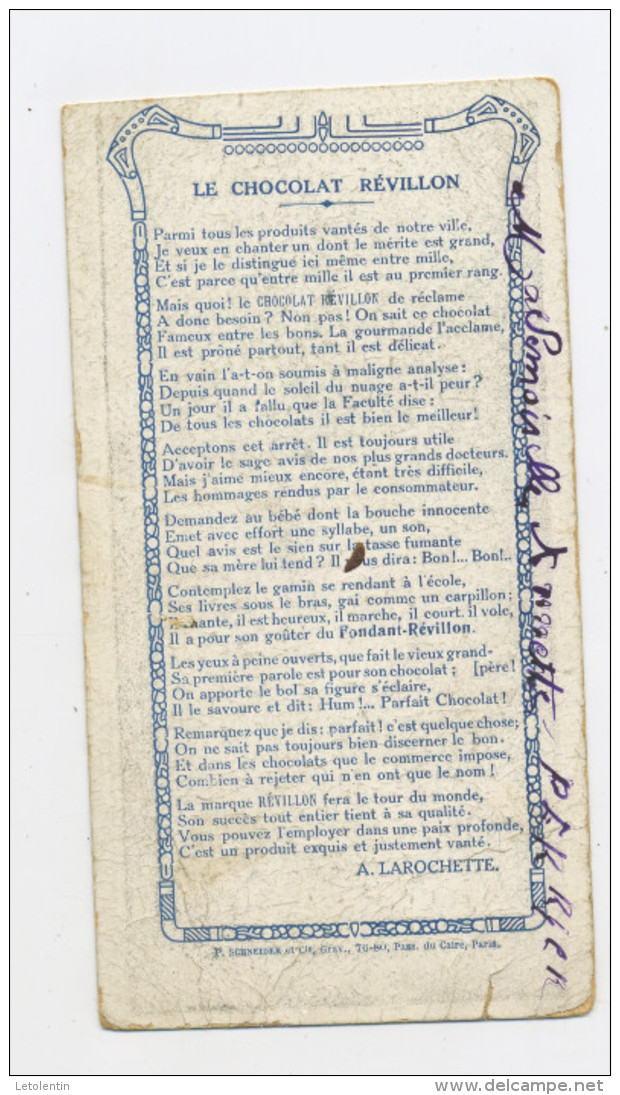 LE CHOCOLAT RÉVILLON
Parmi tous les produits vantés de notre ville,
Je veux en chanter un dont le mérite est grand,
Et si je le distingue ici même entre mille,
C'est parce qu'entre mille il est au premier rang.
Mais quoi! le CHOCOLAT RÉVILLON de réclame
A donc besoin? Non pas! On sait ce chocolat
Fameux entre les bons. La gourmande l'acclame,
Il est prôné partout, tant il est délicat.
En vain l'a-t-on soumis à maligne analyse:
Depuis quand le soleil du nuage a-t-il peur?
Un jour il a fallu que la Faculté dise:
De tous les chocolats il est bien le meilleur!
Acceptons cet arrêt. Il est toujours utile
D'avoir le sage avis de nos plus grands docteurs.
Mais j'aime mieux encore, étant très difficile,
Les hommages rendus par le consommateur.
Demandez au bébé dont la bouche innocente
Emet avec effort une syllabe, un son,
Quel avis est le sien sur la tasse fumante
Que sa mère lui tend? Il us dira: Bon!... Bon!..
Contemplez le gamin se rendant à l'école,
Ses livres sous le bras, gai comme un carpillon;
ante, il est heureux, il marche, il court. il vole,
Il a pour son goûter du Fondant-Révillon.
Les yeux à peine ouverts, que fait le vieux grand-
Sa première parole est pour son chocolat; [père!
On apporte le bol sa figure s'éclaire,
Il le savoure et dit: Hum!... Parfait Chocolat!
Remarquez que je dis: parfait! c'est quelque chose;
On ne sait pas toujours bien discerner le bon.
Et dans les chocolats que le commerce impose,
Combien à rejeter qui n'en ont que le nom!
La marque RÉVILLON fera le tour du monde,
Son succès tout entier tient à sa qualité.
Vous pouvez l'employer dans une paix profonde,
C'est un produit exquis et justement vanté.
A. LAROCHETTE.
P. SCHNEIDER et Cie, Grav., 76-80, Pass. du Caire, Paris.
Letolentin
delcampe.net